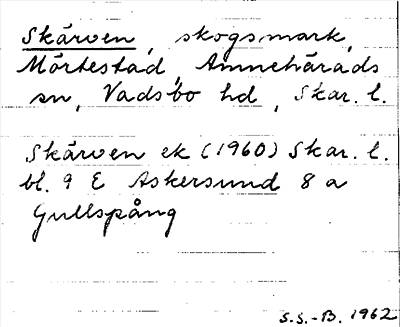 Skärven, skogsmark,
Mörtestad, Amnehärads
sn, Vadsbo hd, Skar. l.
Skärven ek (1960) Skar. l.
bl. 9 E Askersund 8 a
Gullspång
S.S.-B. 1962